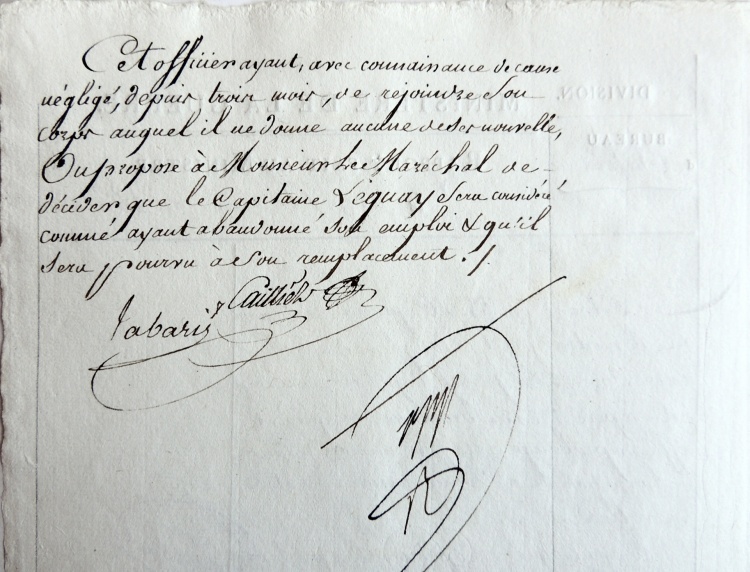 Cet officier ayant, avec connaissance de cause
négligé, depuis trois mois, de rejoindre son
corps auquel il ne donne aucune de ses nouvelle,
On propose à Monsieur Le Maréchal de
décider que le Capitaine Leguay sera considéré
comme ayant abandonné son emploi & qu'il
sera pourvu à son remplacement ./.
Tabarié
DIVISION.
MINISTÈRE DE LA GUERRE
BUREAU